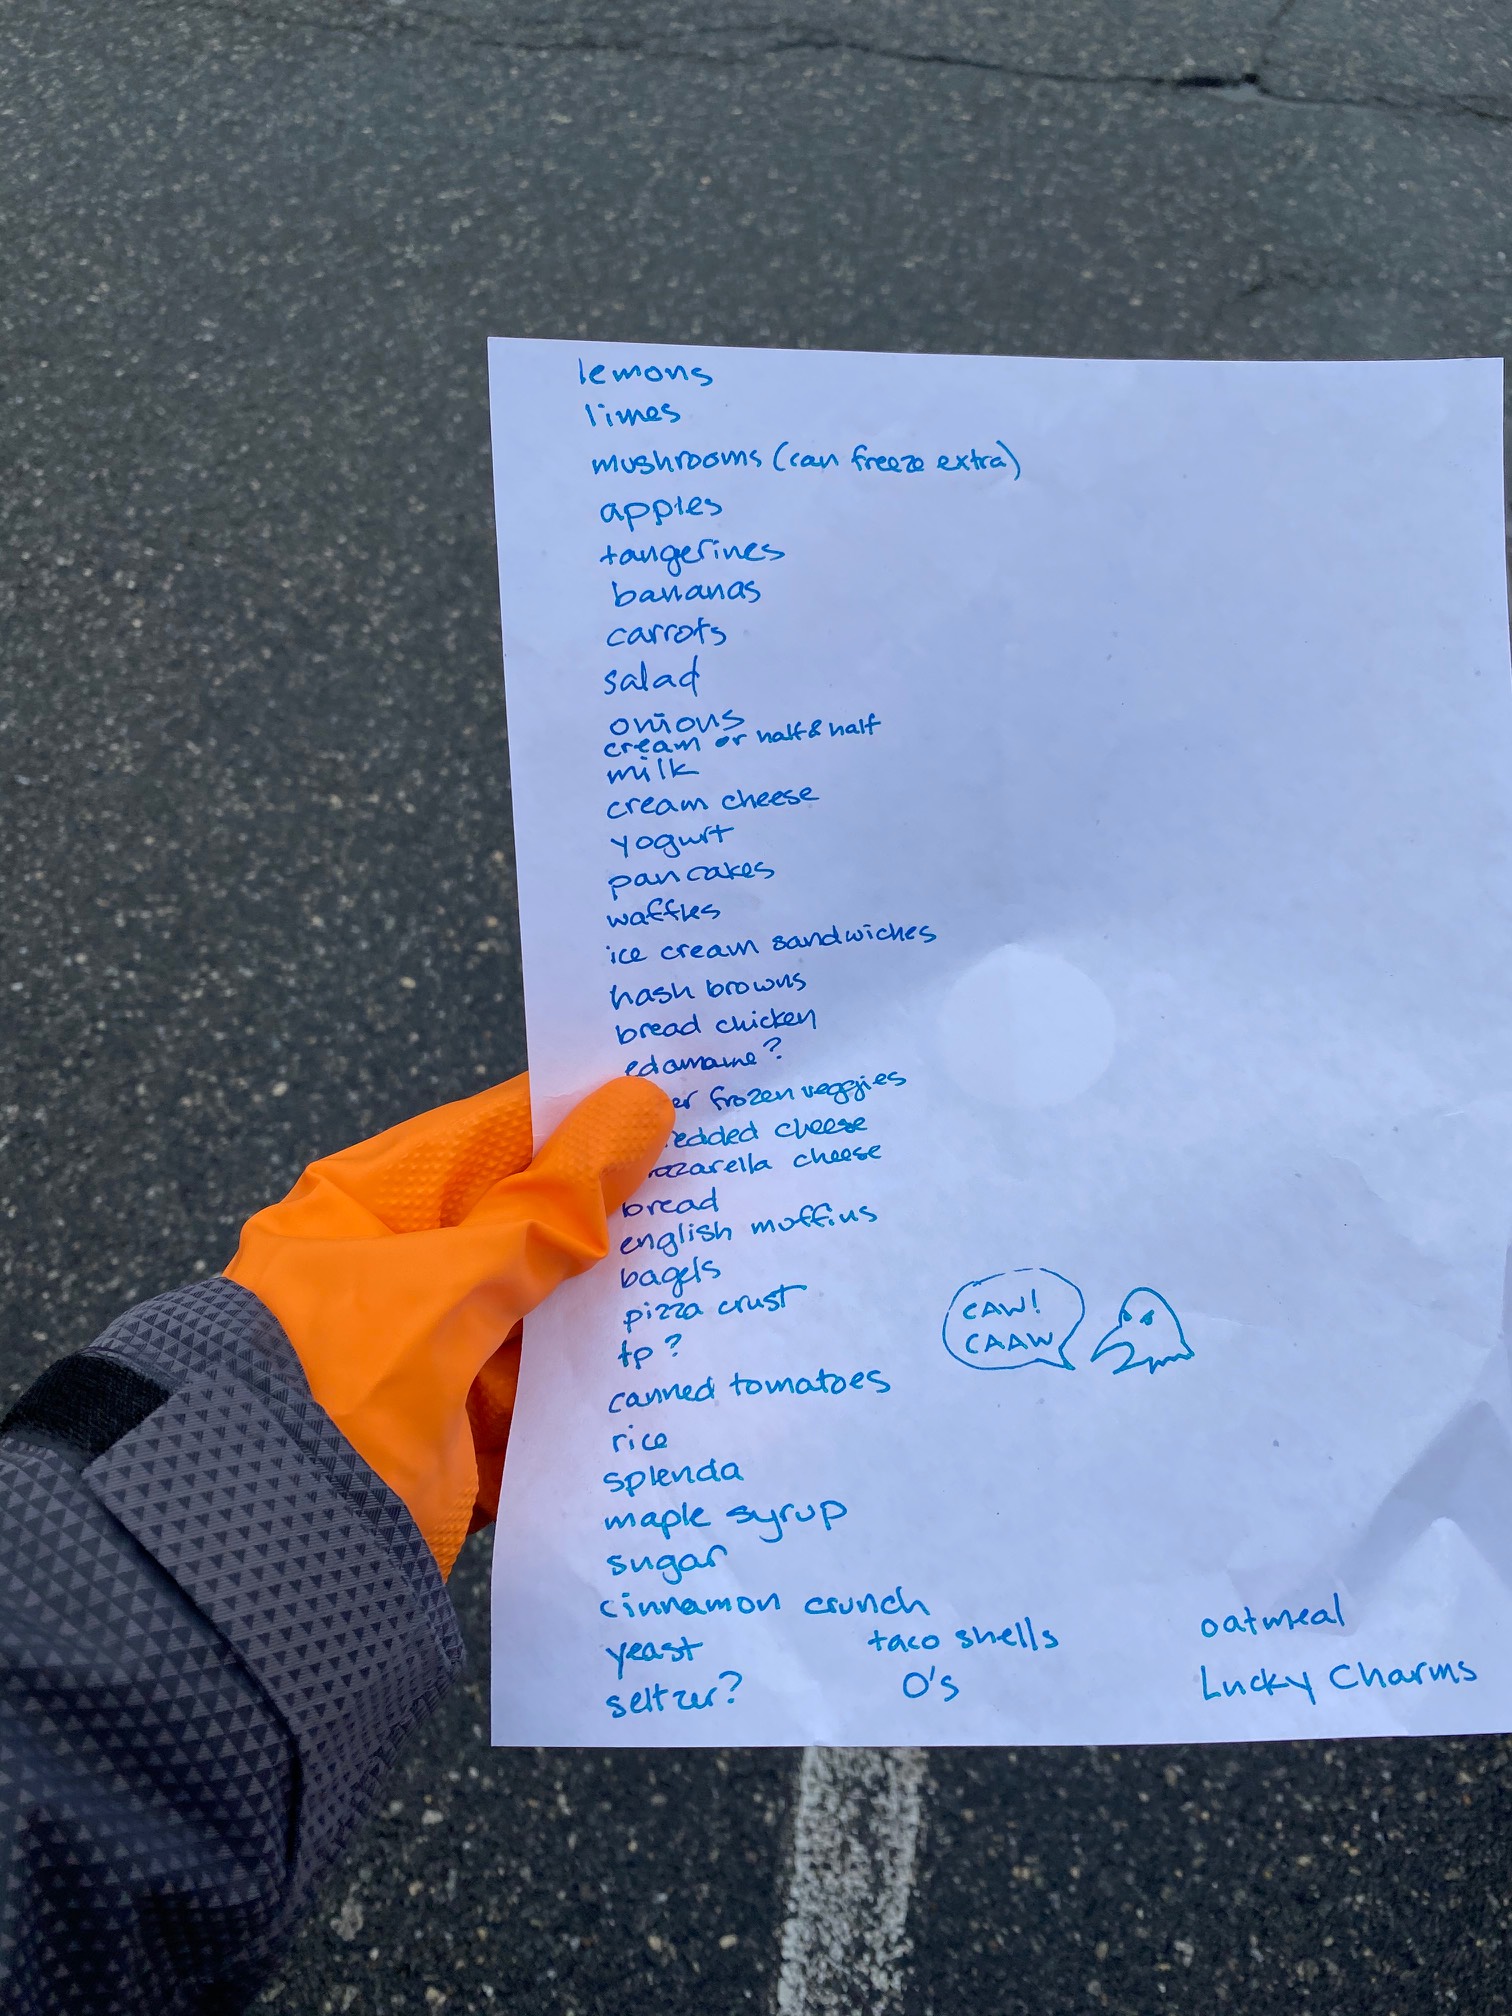 lemons
limes
mushrooms (can freeze extra)
apples
tangerines
bananas
carrots
salad
onions
cream or half & half
milk
cream cheese
yogurt
pancakes
waffles
ice cream sandwiches
hash browns
bread chicken
edamame?
er frozen veggies
edded cheese
zzarella cheese
bread
english muffins
bagels
pizza crust
tp?
CAW!
CAAW
canned tomatoes
rice
splenda
maple syrup
sugar
cinnamon crunch
yeast taco shells oatmeal
seltzer? O's Lucky Charms